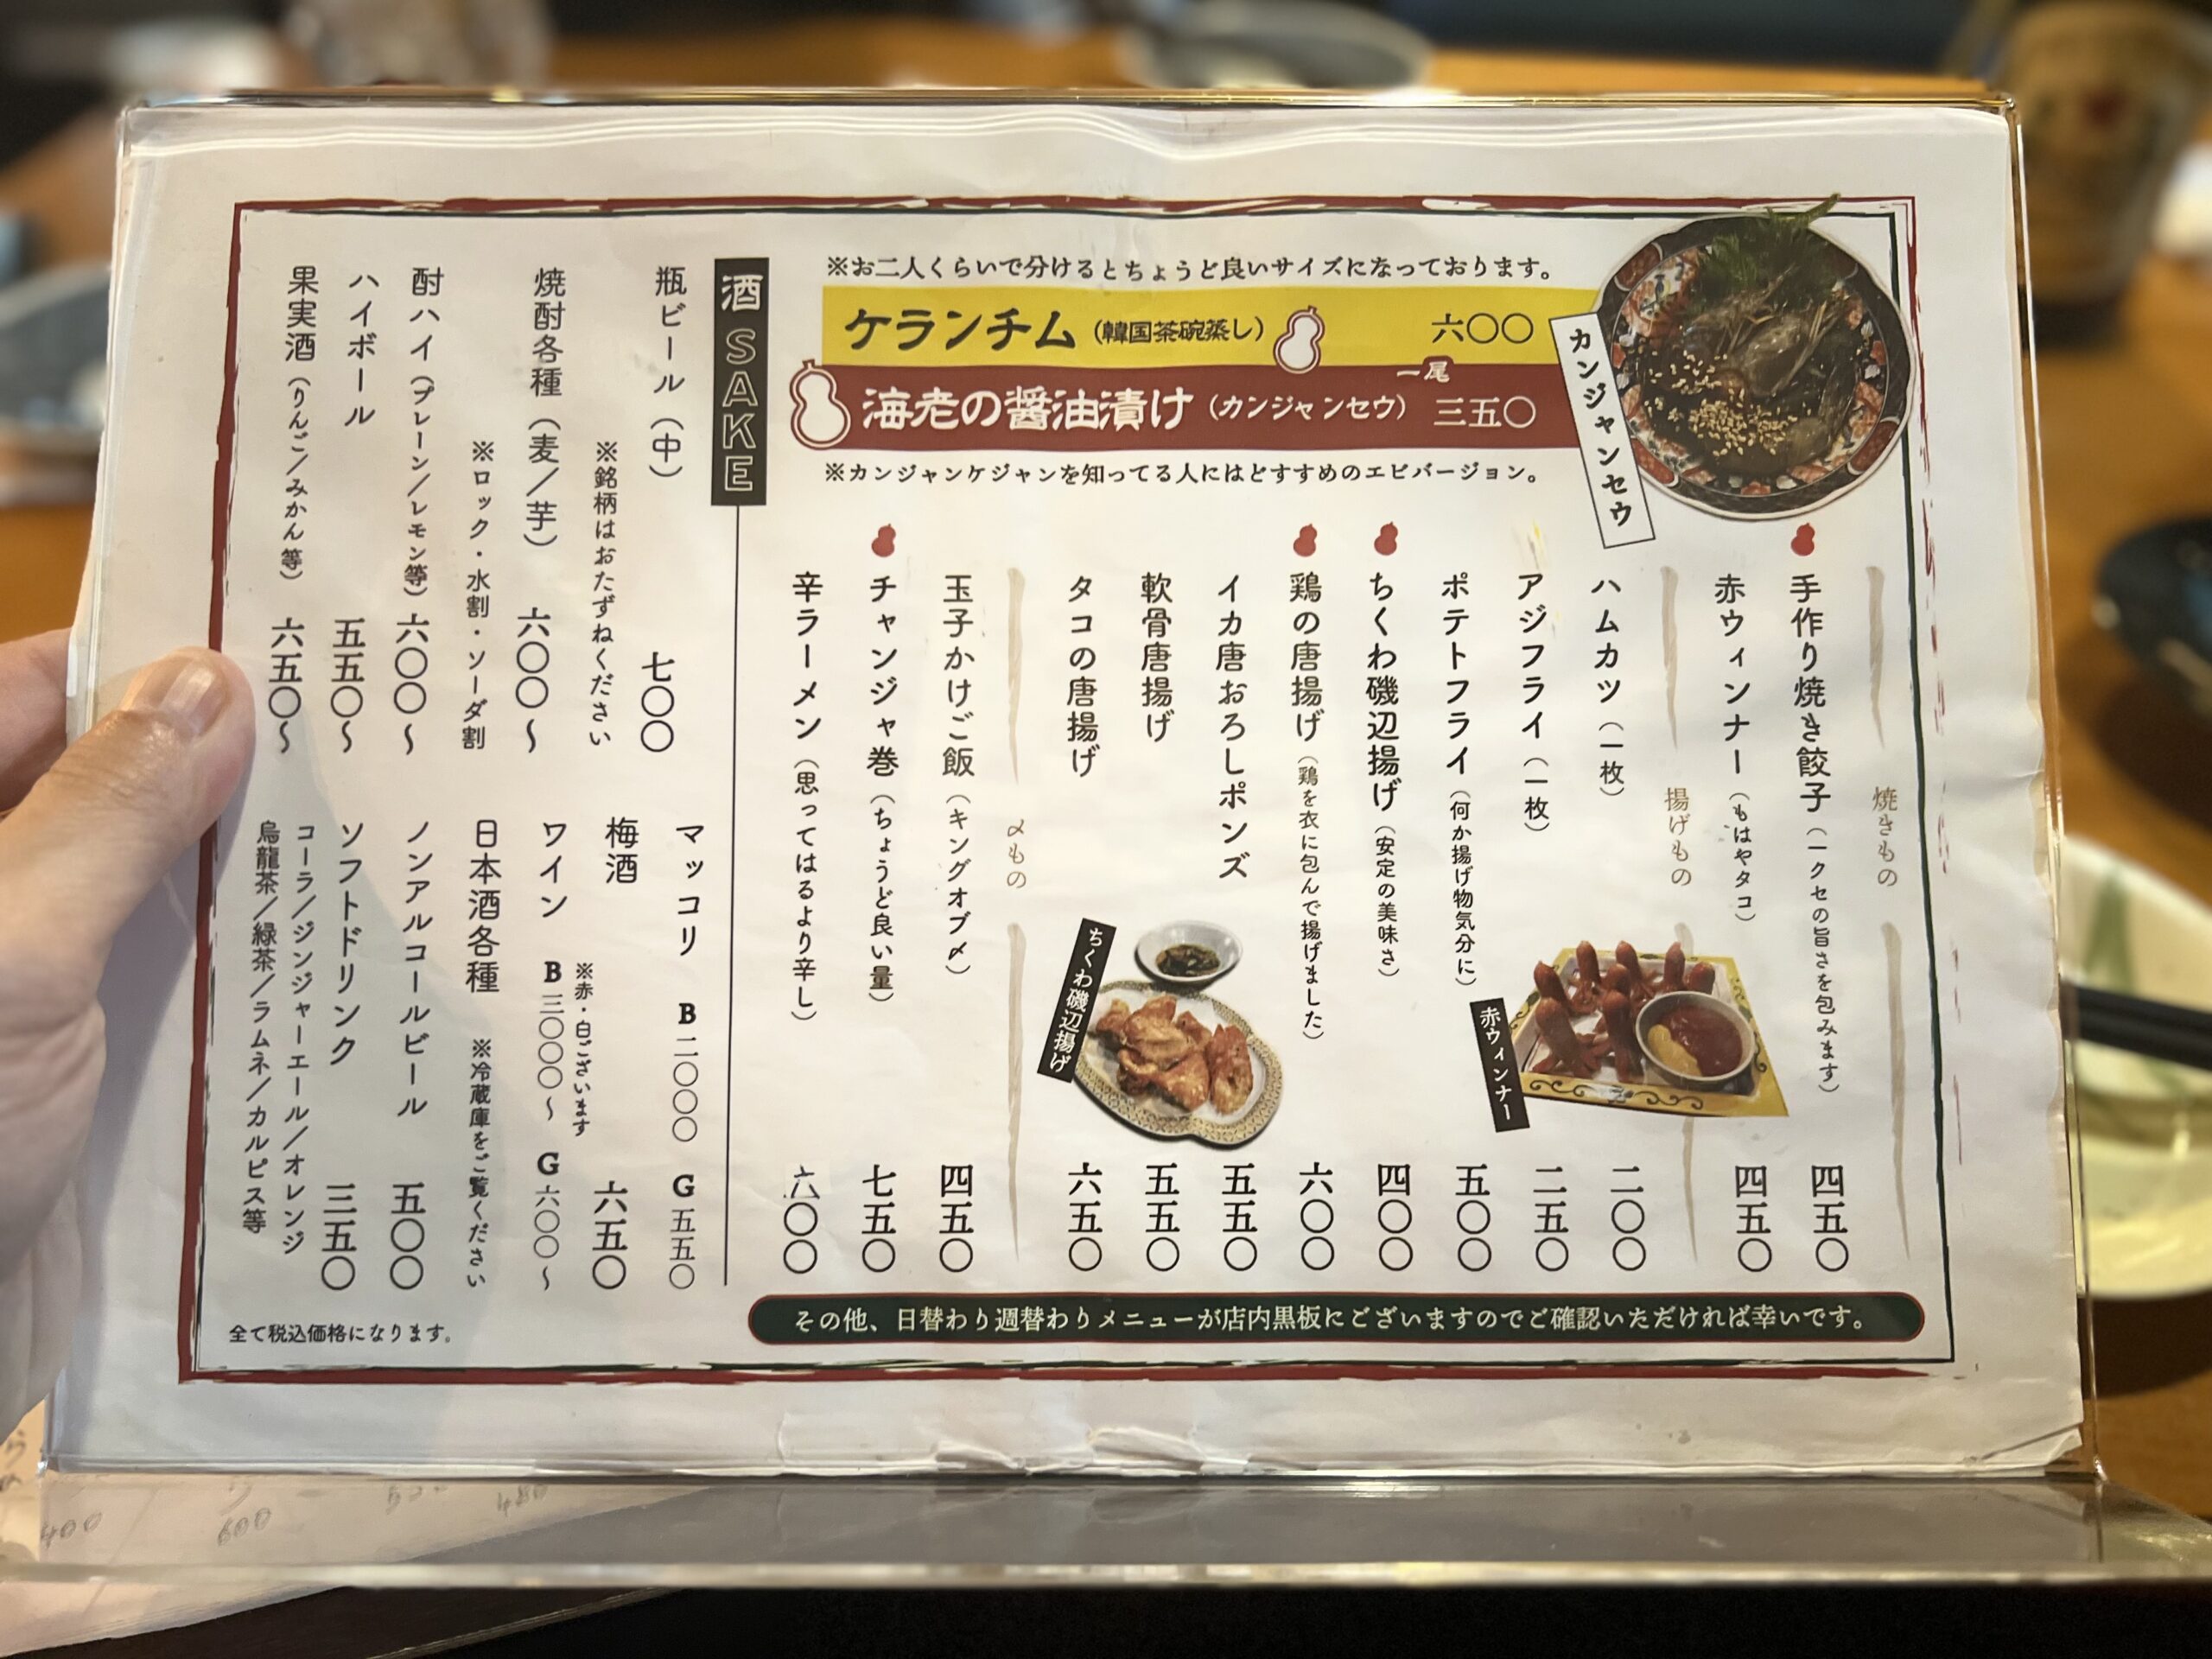 ※お二人くらいで分けるとちょうど良いサイズになっております。
ケランチム（韓国茶碗蒸し） 六〇〇
海老の醤油漬け（カンジャンセウ） 一尾 三五〇
※カンジャンケジャンを知ってる人にはどすすめのエビバージョン。
カンジャンセウ
焼きもの
手作り焼き餃子（一クセの旨さを包みます） 四五〇
赤ウィンナー（もはやタコ） 四五〇
赤ウィンナー
揚げもの
ハムカツ（一枚） 二〇〇
アジフライ（一枚） 二五〇
ポテトフライ（何か揚げ物気分に） 五〇〇
ちくわ磯辺揚げ（安定の美味さ） 四〇〇
鶏の唐揚げ（鶏を衣に包んで揚げました） 六〇〇
イカ唐おろしポンズ 五五〇
軟骨唐揚げ 五五〇
タコの唐揚げ 六五〇
ちくわ磯辺揚げ
〆もの
玉子かけご飯（キングオブ〆） 四五〇
チャンジャ巻（ちょうど良い量） 七五〇
辛ラーメン（思ってはるより辛し） 六〇〇
その他、日替わり週替わりメニューが店内黒板にございますのでご確認いただければ幸いです。
酒 SAKE
瓶ビール（中） 七〇〇
※銘柄はおたずねください
焼酎各種（麦／芋） 六〇〇〜
※ロック・水割・ソーダ割
酎ハイ（プレーン／レモン等） 六〇〇〜
ハイボール 五五〇〜
果実酒（りんご／みかん等） 六五〇〜
マッコリ B 二〇〇〇 G 五五〇
梅酒 六五〇
※赤・白ございます
ワイン B 三〇〇〇〜 G 六〇〇〜
日本酒各種 ※冷蔵庫をご覧ください
ノンアルコールビール 五〇〇
ソフトドリンク 三五〇
コーラ／ジンジャーエール／オレンジ
烏龍茶／緑茶／ラムネ／カルピス等
全て税込価格になります。
400
600
520
480